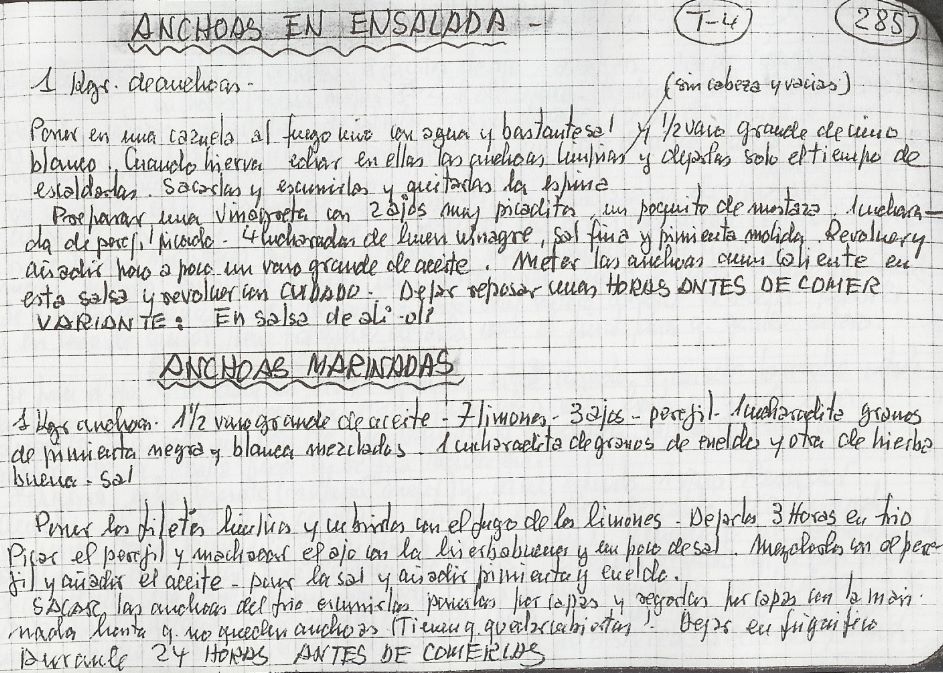 ANCHOAS EN ENSALADA - T-4 285
1 Kgr. de anchoas - (sin cabeza y vacias)
Poner en una cazuela al fuego vivo con agua y bastante sal y 1/2 vaso grande de vino
blanco. Cuando hierva echar en ellas las anchoas limpias y dejarlas solo el tiempo de
escaldarlas. Sacarlas y escurrirlas y quitarlas la espina
Preparar una vinagreta con 2 ajos muy picaditos, un poquito de mostaza, 1 cuchara-
da de perejil picado - 4 cucharadas de buen vinagre, sal fina y pimienta molida. Revolver y
añadir poco a poco un vaso grande de aceite. Meter las anchoas aun caliente en
esta salsa y revolver con CUIDADO. Dejar reposar unas HORAS ANTES DE COMER
VARIANTE: En salsa de ali-oli
ANCHOAS MARINADAS
1 Kgr anchoas. 1 1/2 vaso grande de aceite - 7 limones - 3 ajos - perejil - 1 cucharadita granos
de pimienta negra y blanca mezclados. 1 cucharadita de granos de eneldo y otra de hierba
buena - sal
Poner los filetes limpios y cubrirlos con el jugo de los limones - Dejarlos 3 Horas en frio
Picar el perejil y machacar el ajo con la hierbabuena y un poco de sal. Mezclarlos con el pere-
jil y añadir el aceite - poner la sal y añadir pimienta y eneldo.
SACAR las anchoas del frio escurrirlas ponerlas por capas y regarlas por capas con la mari-
nada hasta q. no queden anchoas (Tienen q. quedar cubiertas). Dejar en frigorifico
Durante 24 HORAS ANTES DE COMERLAS